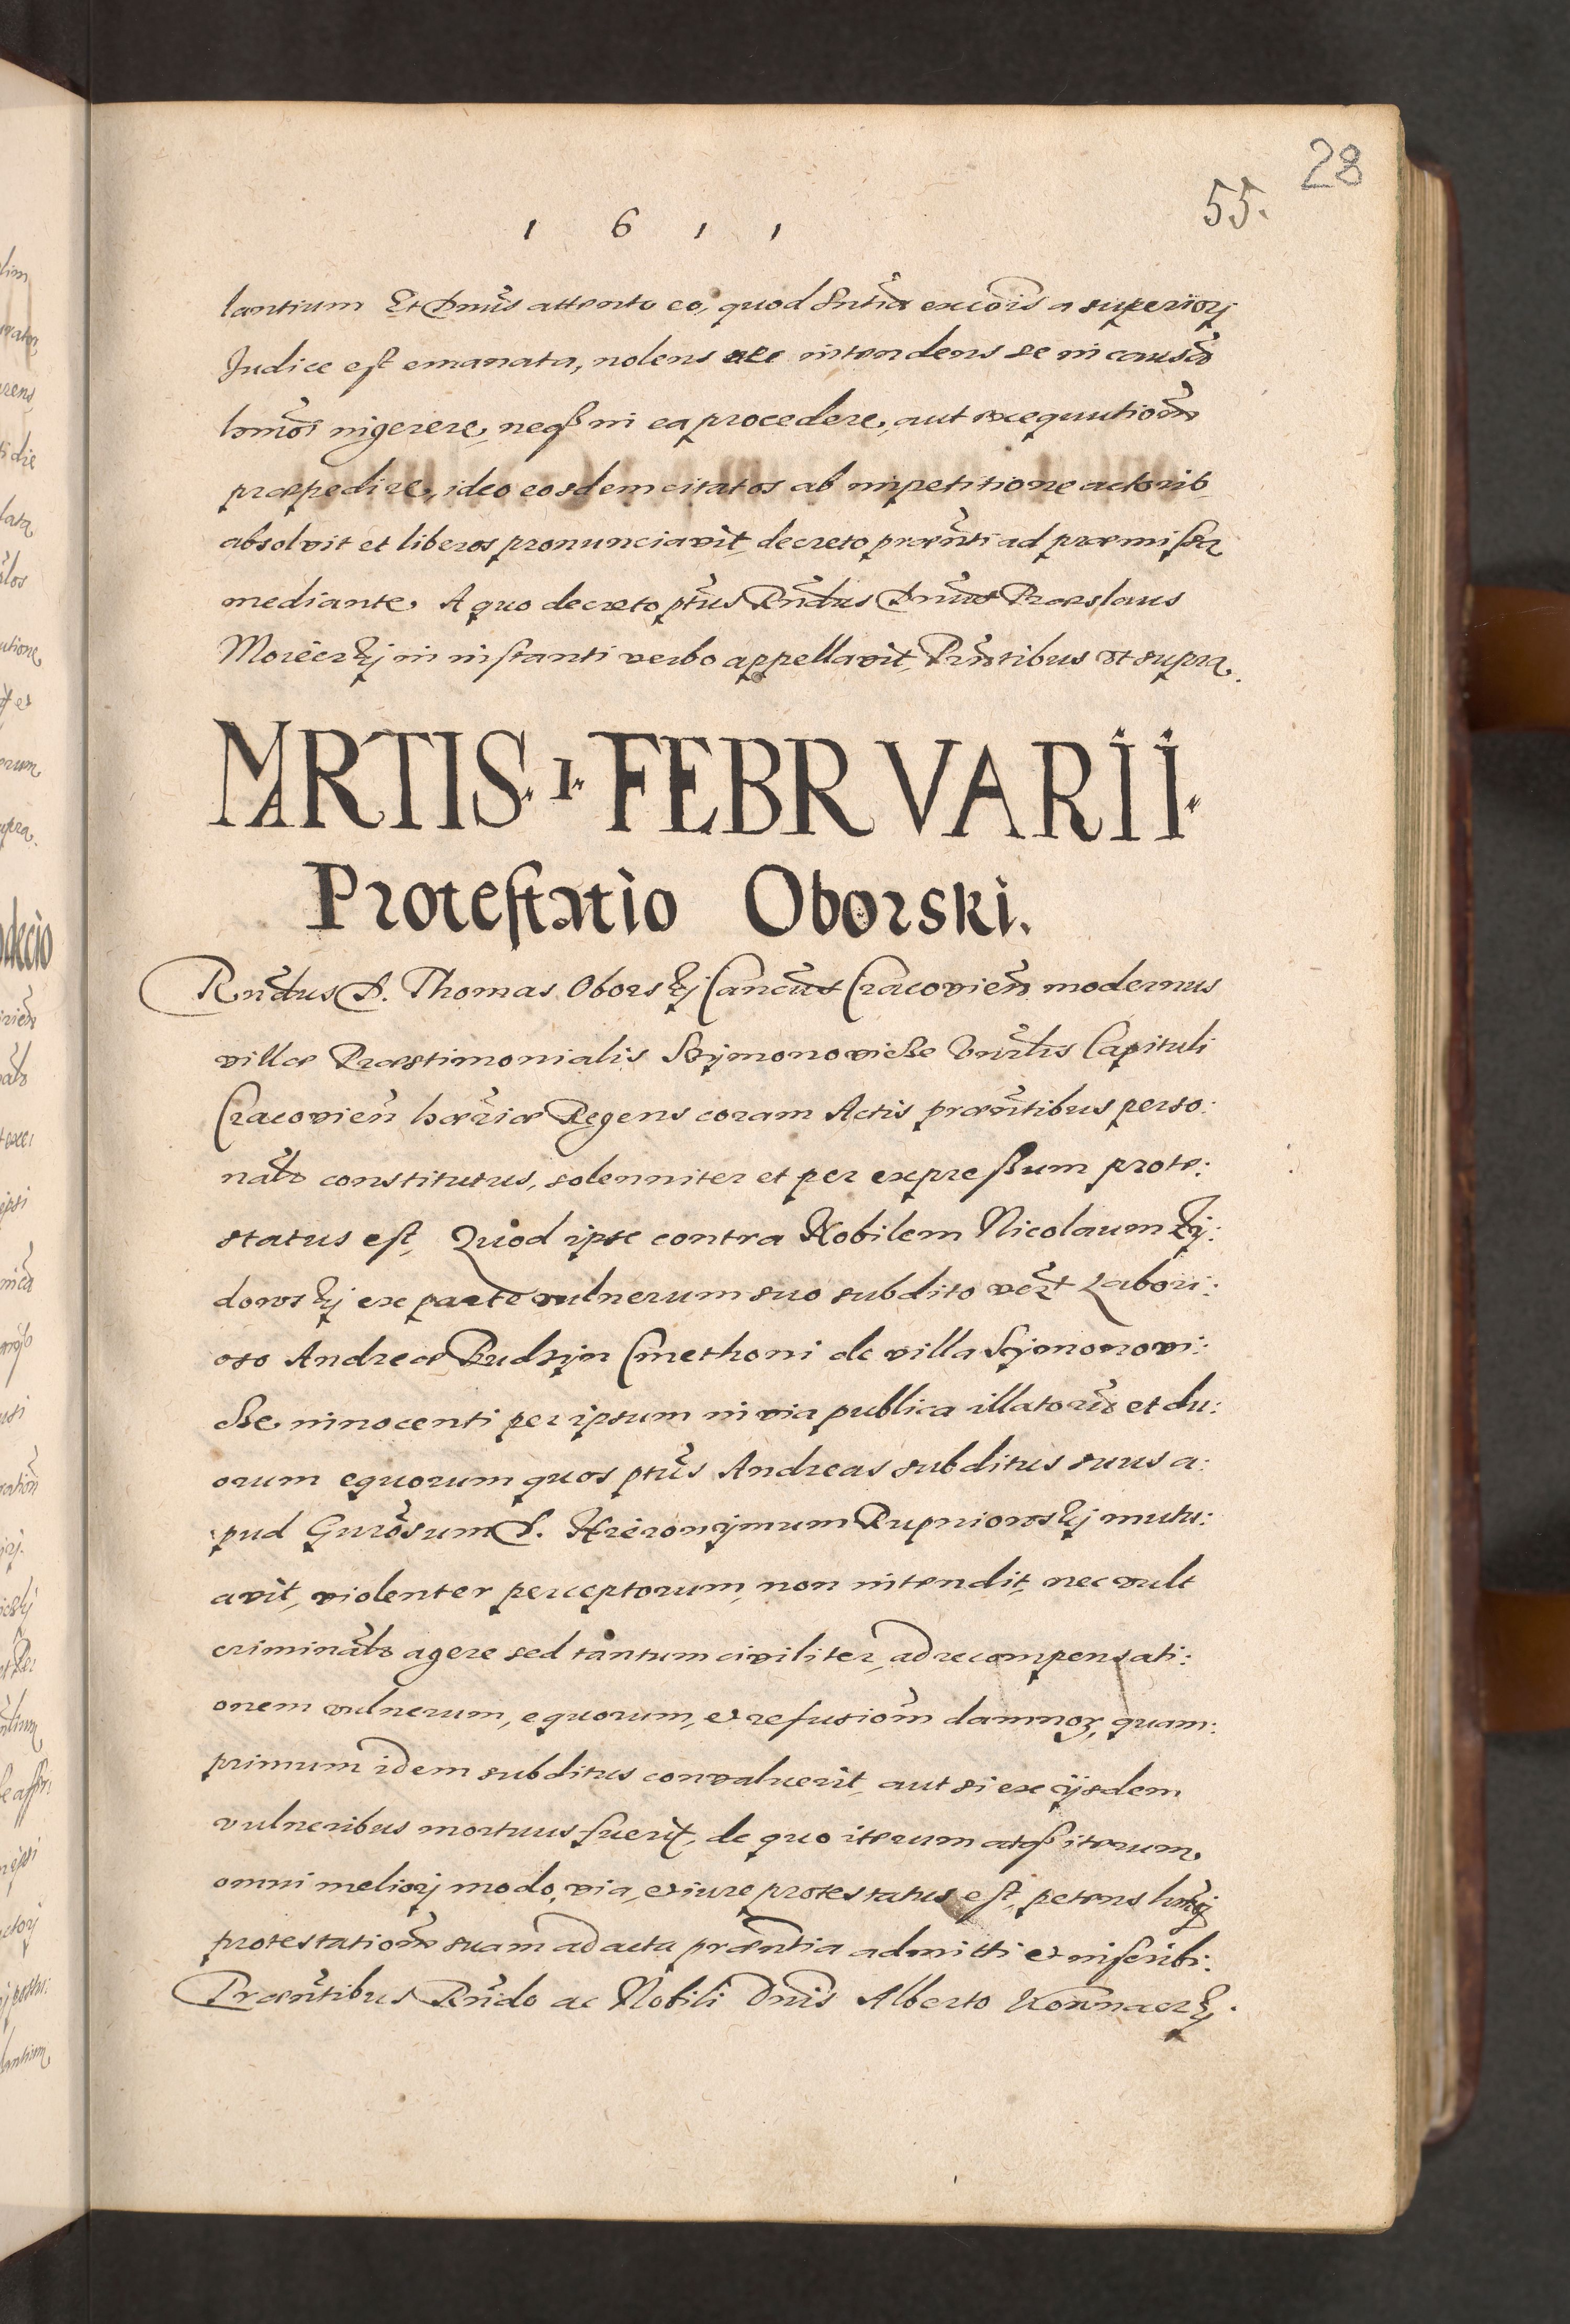 28
55.
1 6 1 1
lantium Et Dnus attento eo, quod sntia excois a superiorj
Judice est emanata, nolens nec intendens se in causa
hmoi ingerere, neqз in ea procedere, aut exequutiom
præpedire, ideo eosdem citatos ab impetitione actorib
absolvit et liberos pronunciavit, decreto prænti ad præmissa
mediante. A quo decreto ptus Rndus Dnus Præslaus
in instanti verbo appellavit, Prntibus ut supra.
MARTIS. 1. FEBRVARII.
Protestatio Oborski.
Rndus D. Thomas Oborskj Cancus Cracovien modernus
villæ Præstimonialis Capituli
Cracovien Regens coram Actis præntibus perso:
nalr constitutus, solenniter et per expressum prote:
status est, Quod ipse contra Nobilem Nicolaum Ży:
dowskj ex parte vulnerum suo subdito vert Labori:
oso Andreæ Budzyn Cmethoni de villa Szymonowi:
cze innocenti per ipsum in via publica illatorum et du:
orum equorum quos ptus Andreas subditus suus a:
pud Gnrosum D. Hieronymum Rupniowskj mutu:
avit, violenter perceptorum, non intendit, nec vult
criminalr agere sed tantum civiliter, ad recompensati:
onem vulnerum, equorum, et refusiom damnoꝝ, quam:
primum idem subditus convaluerit, aut si ex ijsdem
vulneribus mortuus fuerit, de quo iterum atqз iterum,
omni meliorj modo, via, et iure protestatus est, petens hmoj
protestatiom suam ad acta præntia admitti et inscribi.
Præntibus Rndo ac Nobili Dnis Alberto